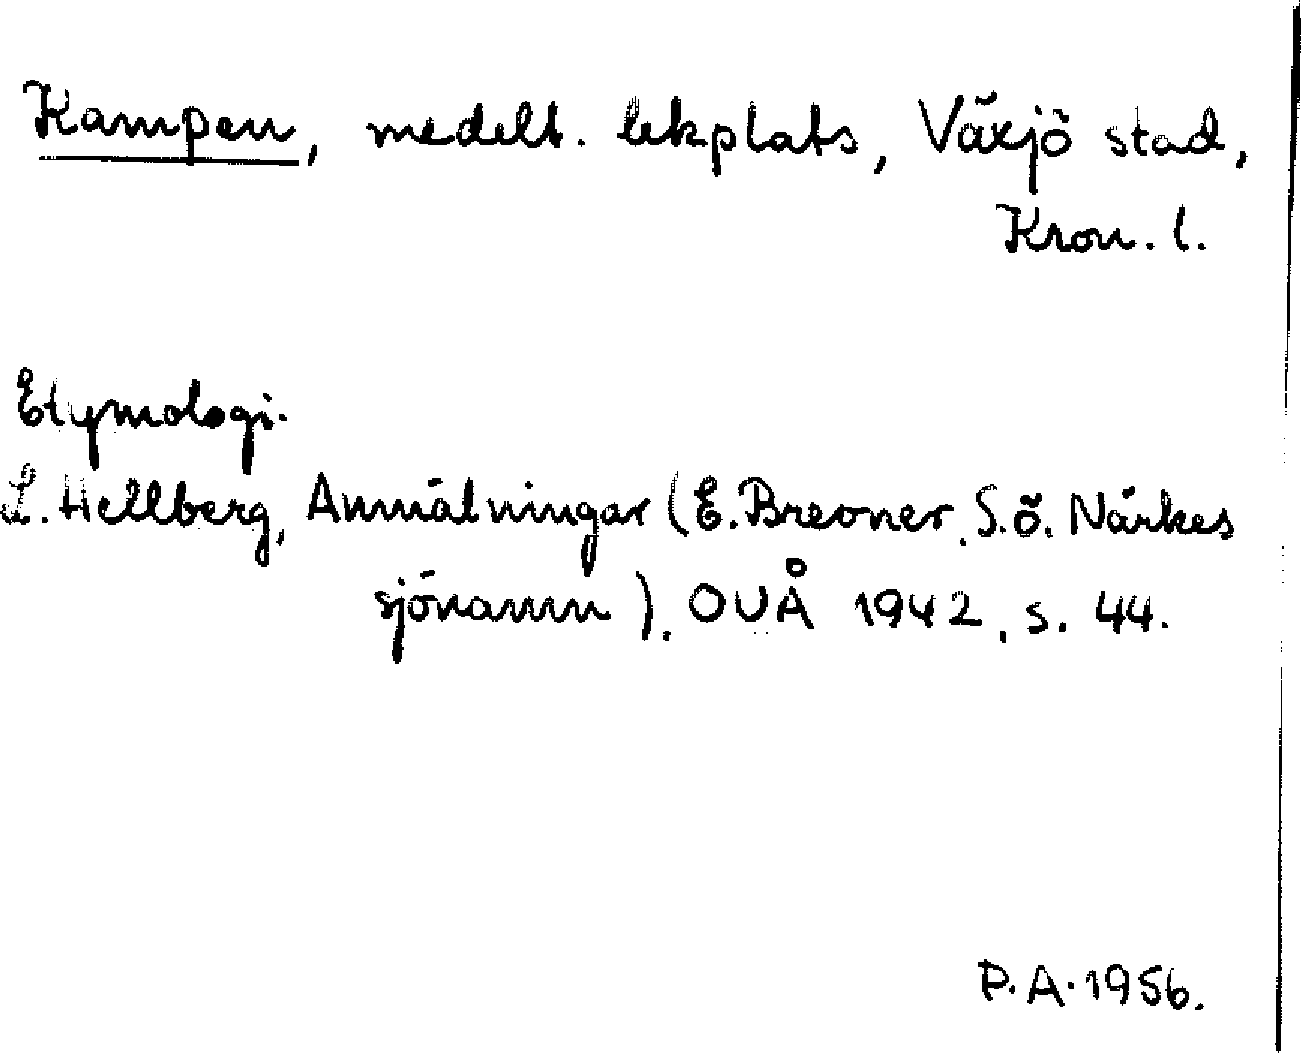 Kampen, medelt. lekplats, Växjö stad,
Kron. l.
Etymologi.
L. Hellberg, Anmälningar (E. Brevner, S.ö. Närkes
sjönamn). OUÅ 1942, s. 44.
P.A. 1956.